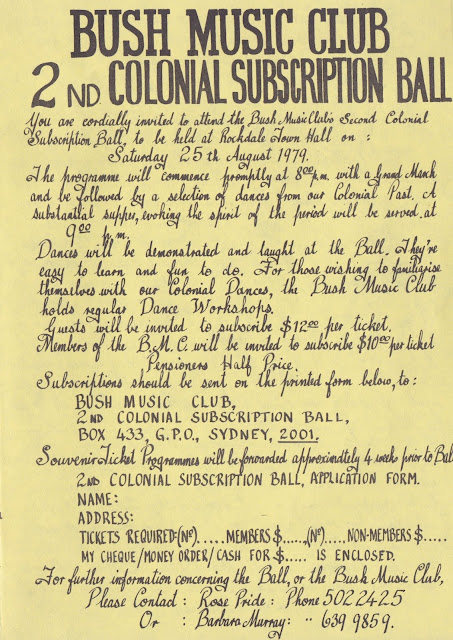 BUSH MUSIC CLUB
2ND. COLONIAL SUBSCRIPTION BALL
You are cordially invited to attend the Bush Music Club's Second Colonial
Subscription Ball, to be held at Rockdale Town Hall on :
Saturday 25th August 1979.
The programme will commence promptly at 8.00p.m. with a Grand March
and be followed by a selection of dances from our Colonial Past. A
substantial supper, evoking the spirit of the period will be served at
9.00 p.m.
Dances will be demonstrated and taught at the Ball. They're
easy to learn and fun to do. For those wishing to familiarise
themselves with our Colonial Dances, the Bush Music Club
holds regular Dance Workshops.
Guests will be invited to subscribe $12.00 per ticket.
Members of the B.M.C. will be invited to subscribe $10.00 per ticket
Pensioners Half Price.
Subscriptions should be sent on the printed form below, to:
BUSH MUSIC CLUB,
2ND COLONIAL SUBSCRIPTION BALL,
BOX 433, G.P.O., SYDNEY, 2001.
Souvenir Ticket Programmes will be forwarded approximately 4 weeks prior to Ball
2ND COLONIAL SUBSCRIPTION BALL, APPLICATION FORM.
NAME:
ADDRESS:
TICKETS REQUIRED:(Nº)..... MEMBERS $......,(Nº)..... NON-MEMBERS $.....
MY CHEQUE/MONEY ORDER/CASH FOR $..... IS ENCLOSED.
For further information concerning the Ball, or the Bush Music Club,
Please Contact : Rose Pride : Phone 502 2425
Or : Barbara Murray: " 639 9859.